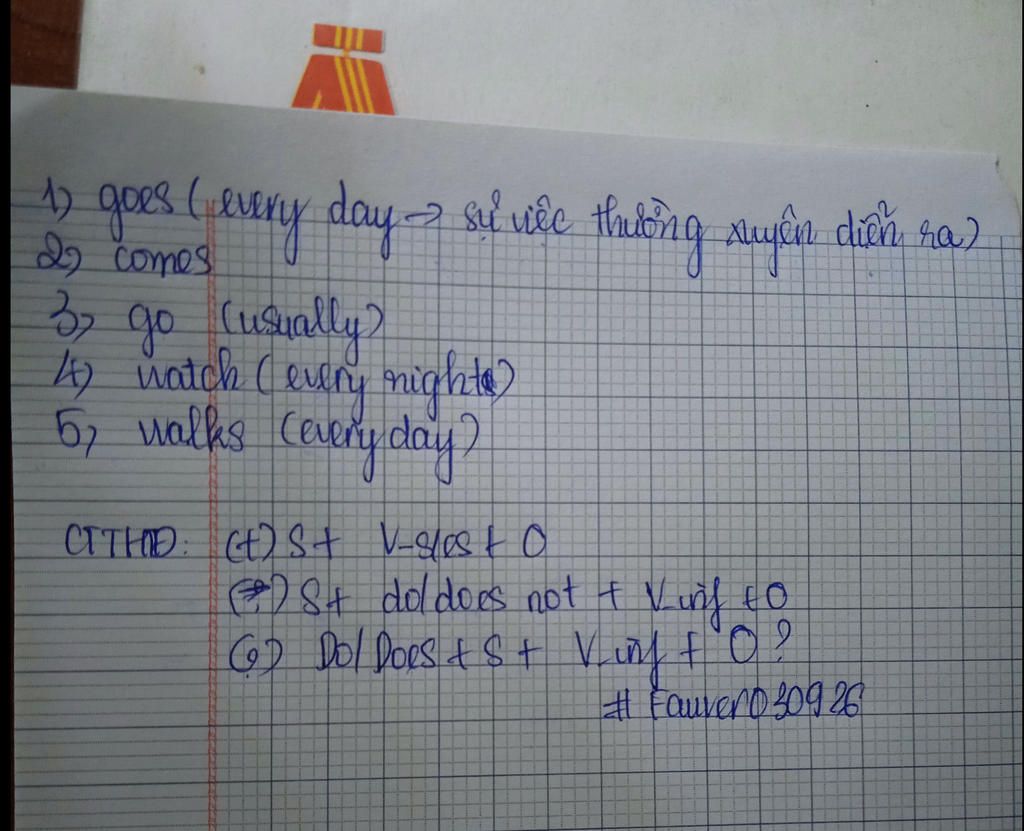 1) goes ( every day → sự việc thường xuyên diễn ra)
2) comes
3) go (usually)
4) watch ( every night)
5) walks (every day)
CTTHTD: (+) S + V-s/es + O
S + do/does not + V_inf + O
(?) Do/Does + S + V_inf + O ?
# Fauver030926